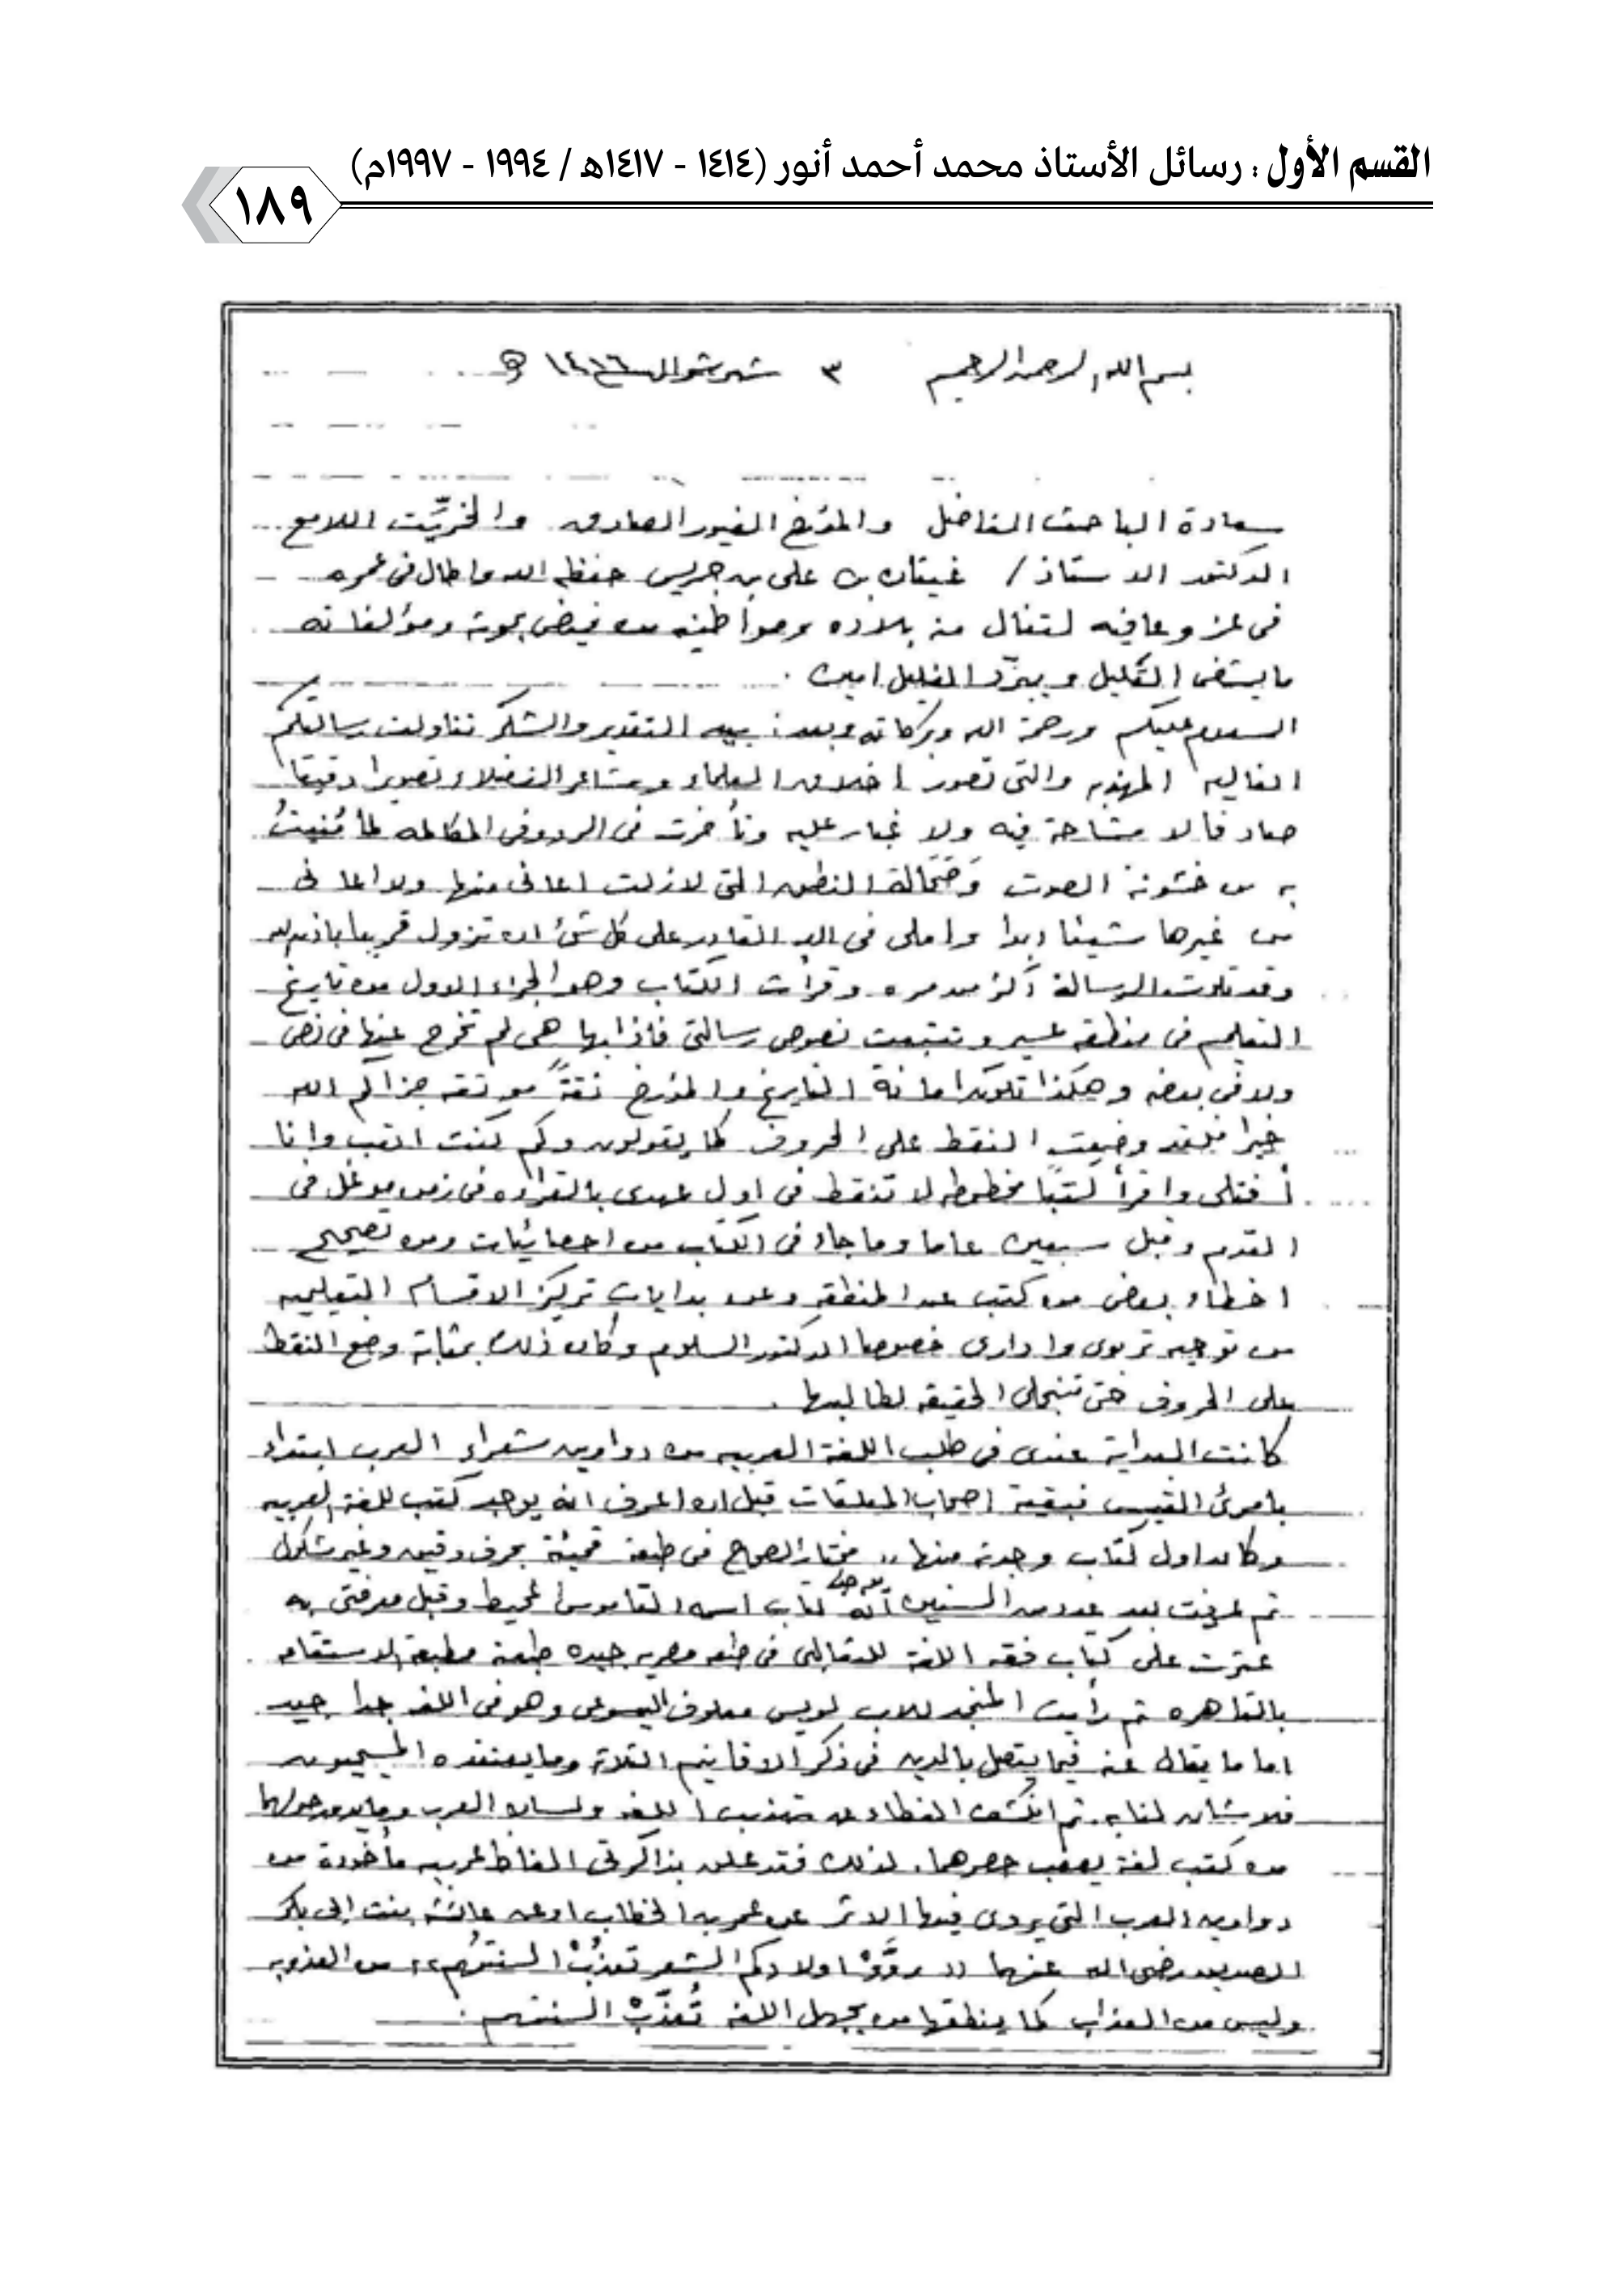 القسم الأول : رسائل الأستاذ محمد أحمد أنور (١٤١٤ - ١٤١٧هـ / ١٩٩٤ - ١٩٩٧م)
١٨٩
بسم الله الرحمن الرحيم ٣ شهر شوال ١٤١٦ هـ
سعادة الباحث الفاضل والمؤرخ الغيور الصادق والخرِّيت اللامع
الدكتور الاستاذ / غيثان بن على بن جريس حفظه الله واطال فى عمره
فى عز وعافيه لتنال من بلاده ومواطنيه من فيض بحوثه ومؤلفاته
ما يشفى العليل ويبرّد الغليل امين .
السلام عليكم ورحمة الله وبركاته وبعد : بيد التقدير والشكر تناولت رسالتكم
الغاليه المهذبه والتى تصور اخلاق العلماء ومشاعر الفضلاء تصويرا دقيقا
صادقا لا مشاحة فيه ولا غبار عليه وتأخرت فى الرد وفى المكالمه لما مُنيتُ
به من خشونة الصوت وَضَحَالة النطق التى لازلت اعانى منها ولا اعانى
من غيرها شيئا ابدا واملى فى الله القادر على كل شئ ان تزول قريبا باذن الله
وقد تلوت الرسالة أكثر من مره وقرأت الكتاب وهو الجزء الاول من تاريخ
التعليم فى منطقه عسير وتتبعت نصوص رسالتى فاذا بها هى لم تخرج عنها فى نص
ولا فى بعضه وهكذا تكون امانة التاريخ والمؤرخ ثقةً موثقه جزاكم الله
خيرا فلقد وضعت النقط على الحروف كما يقولون وكم كنت اتعب وانا
أفتلى واقرأ كتبًا مخطوطه لا تنقط فى اول عهدى بالقراءه فى زمن موغل فى
القدم وقبل سبعين عاما وما جاء فى الكتاب من احصائيات ومن تصحيح
اخطاء بعض من كتب عن المنطقه وعن بدايات تركيز الاقسام التعليميه
من توجيه تربوى وادارى خصوصا الدكتور السلوم وكان ذلك بمثابة وضع النقط
على الحروف حتى تنجلى الحقيقه لطالبها .
كانت البداية عندى فى طلب اللغة العربيه من دواوين شعراء العرب ابتداء
بامرئ القيس فبقية اصحاب المعلقات قبل ان اعرف انه يوجد كتب للغة العربيه
وكان اول كتاب وجدته منها ,, مختار الصحاح فى طبعة قميئة بحرف دقيق وغير مشكول
ثم عرفت بعد عدد من السنين أنه كتاب اسمه القاموس المحيط وقبل معرفتى به
عثرت على كتاب فقه اللغة للثعالبى فى طبعه مصريه جيده طبعة مطبعة الاستقامه
بالقاهره ثم رأيت المنجد للاب لويس معلوف اليسوعى وهو فى اللغه جدا جيد
اما ما يقال عنه فيما يتصل بالدين فى ذكر الاقانيم الثلاثة وما يعتقده المسيحيون
فلا شأن لنا به. ثم انكشف الغطاء عن تهذيب اللغه ولسان العرب وما يدور حولهما
من كتب لغة يصعب حصرها. لذلك فقد علق بذاكرتى الفاظ عربيه مأخوذة من
دواوين العرب التى يروى فيها الاثر عن عمر بن الخطاب او عن عائشة بنت ابى بكر
الصديق رضى الله عنهما ,, روُّوْا اولادكم الشعر تعذُبْ السنتُهم ,, من العذوبه
وليس من العذاب كما ينطقها من يجهل اللغه تُعذَّبْ السنتهم .